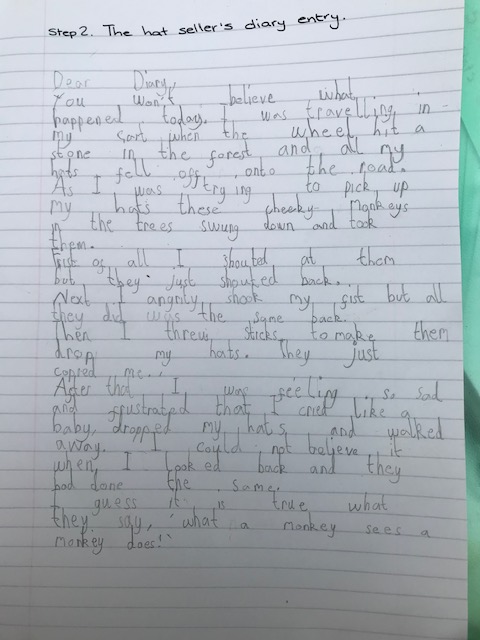 Step 2. The hat seller's diary entry.
Dear Diary,
You won't believe what
happened today. I was travelling in
my cart when the wheel hit a
stone in the forest and all my
hats fell off onto the road.
As I was trying to pick up
my hats these cheeky monkeys
in the trees swung down and took
them.
First of all I shouted at them
but they just shouted back.
Next I angrily shook my fist but all
they did was the same back.
Then I threw sticks to make them
drop my hats. They just
copied me.
After that I was feeling so sad
and frustrated that I cried like a
baby, dropped my hats and walked
away. I could not believe it
when I looked back and they
had done the same.
I guess it is true what
they say, 'what a monkey sees a
monkey does!'